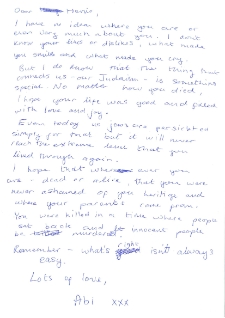 Dear Marie,
I have no idea where you are or
even very much about you. I don't
know your likes or dislikes, what made
you smile and what made you cry.
But I do know that the thing that
connects us - our Judaism - is something
special. No matter how you died,
I hope your life was good and filled
with love and joy.
Even today, us Jews are persecuted
simply for that but it will never
reach the extreme level that you
lived through again.
I hope that wherever you
are - dead or alive, that you were
never ashamed of your heritage and
where your parents came from.
You were killed in a time where people
sat back and let innocent people
be murdered.
Remember - what's right isn't always
easy.
Lots of love,
Abi xxx